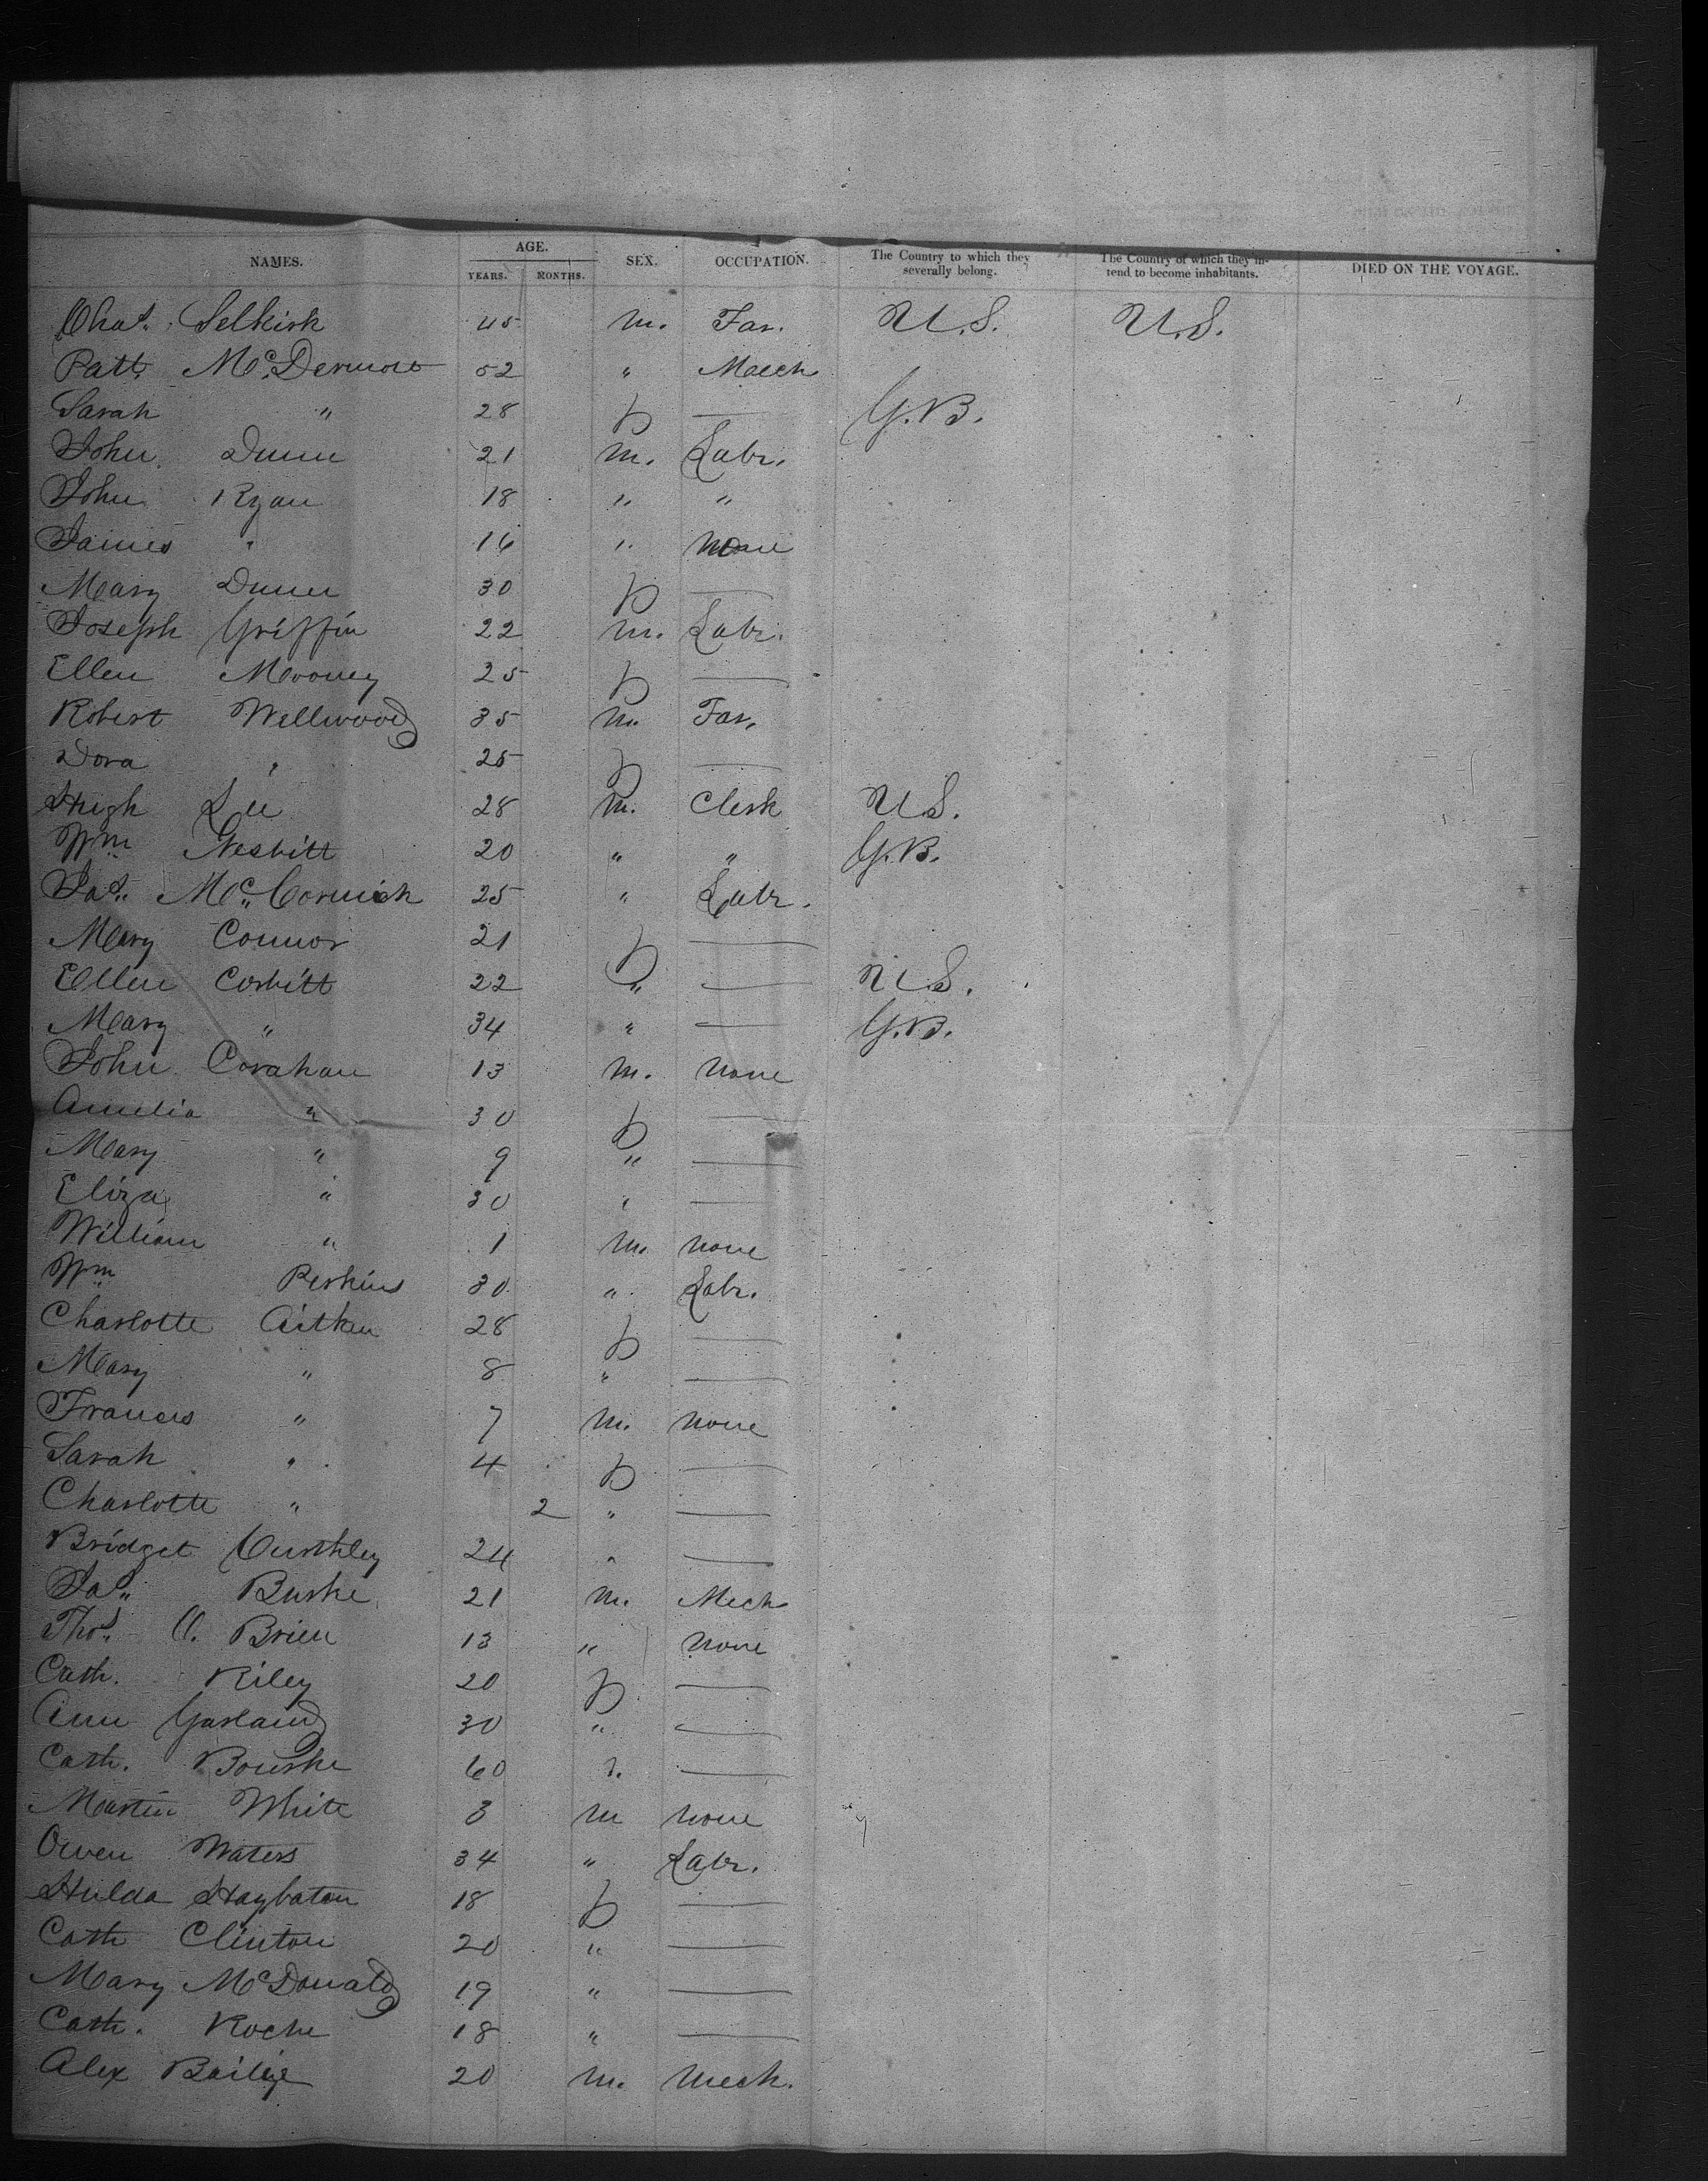 NAMES. AGE. YEARS. MONTHS. SEX. OCCUPATION. The Country to which they severally belong. The Country of which they intend to become inhabitants. DIED ON THE VOYAGE.
Chas. Selkirk 45 m. Far. U.S. U.S.
Patt. McDermott 52 " Mech
Sarah " 28 f — G.B.
John Dunn 21 m. Labr.
John Ryan 18 " "
James " 16 " None
Mary Dunn 30 f —
Joseph Griffin 22 m. Labr.
Ellen Mooney 25 f —
Robert Wellwood 35 m. Far.
Dora " 25 f —
Hugh Lee 28 m. Clerk U.S.
Wm Nesbitt 20 " " G.B.
Jas. McCormick 25 " Labr.
Mary Connor 21 f —
Ellen Corbitt 22 " — U.S.
Mary " 34 " — G.B.
John Corahan 13 m. None
Amelia " 30 f —
Mary " 9 " —
Eliza " 30 " —
William " 1 m. none
Wm Perkins 30 " Labr.
Charlotte Aitken 28 f —
Mary " 8 " —
Francis " 7 m. none
Sarah " 4 f —
Charlotte " 2 " —
Bridget 24 " —
Jas. Burke 21 m. Mech
Thos. O. Brien 13 " none
Cath. Riley 20 f —
Ann Garland 30 " —
Cath. Bourke 60 " —
Martin White 3 m none
Owen Waters 34 " Labr.
Hulda 18 f —
Cath Clinton 20 " —
Mary McDonald 19 " —
Cath. Roche 18 " —
Alex Bailie 20 m. Mech.